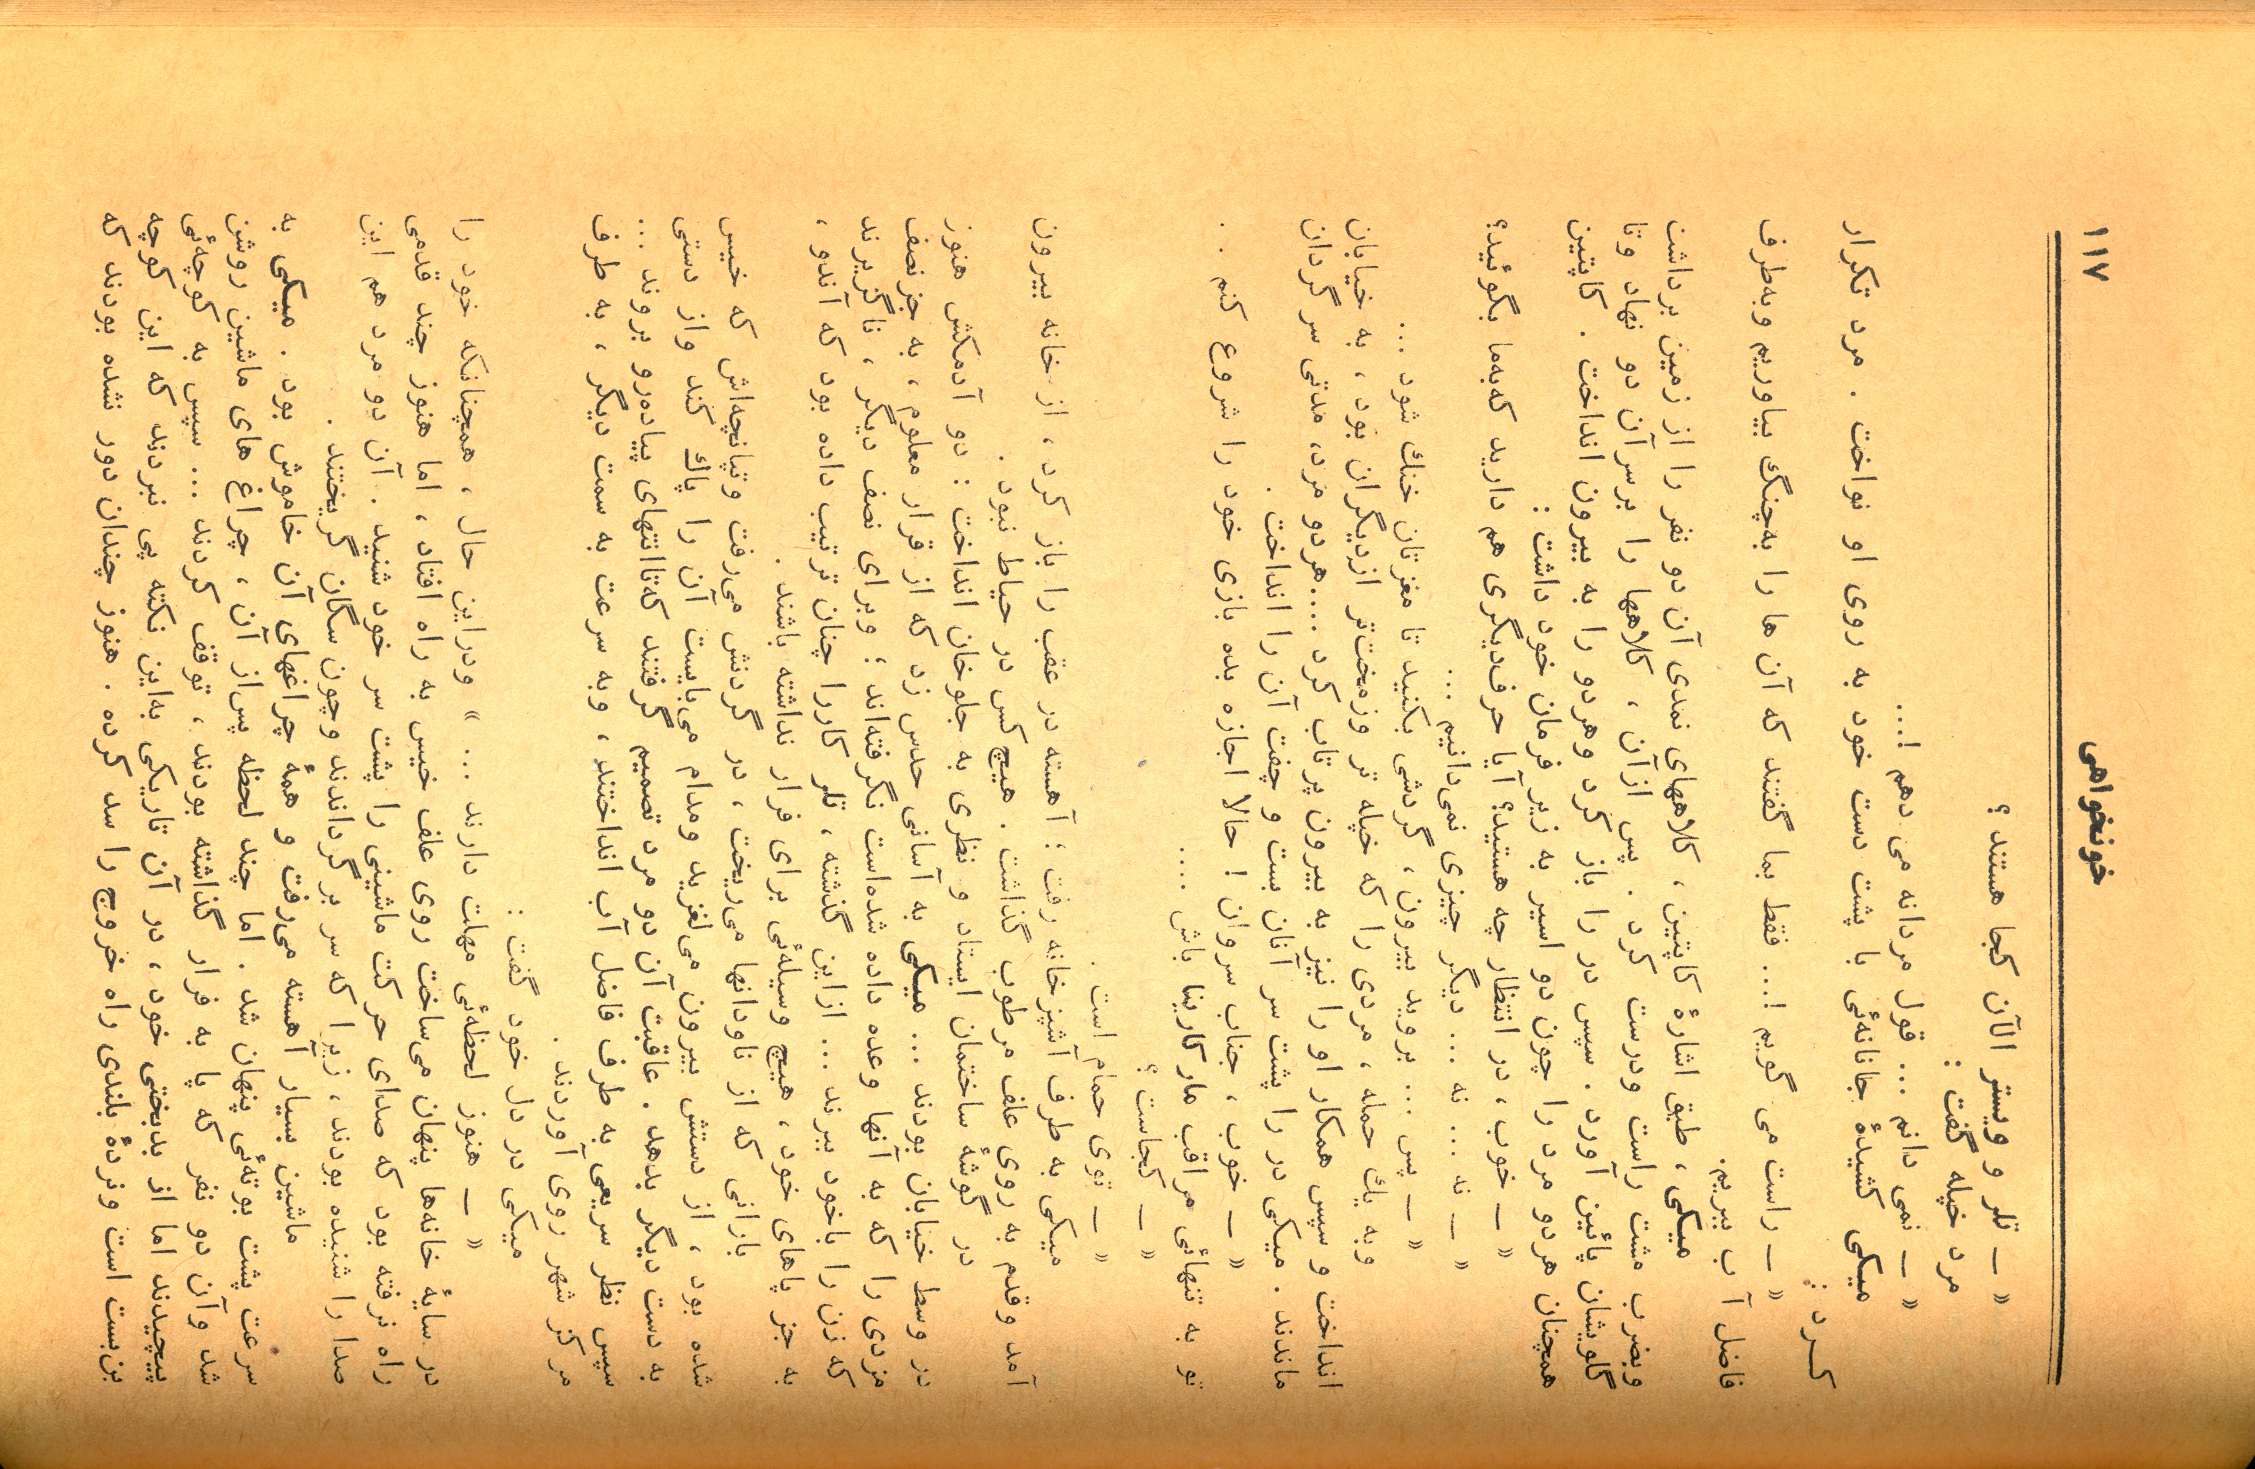 خونخواهی
۱۱۷
« ــ تلر و ویستر الآن کجا هستند ؟
مرد خپله گفت :
« ــ نمی دانم ... قول مردانه می دهم !...
میکی کشیدۀ جانانه‌ئی با پشت دست خود به روی او نواخت . مرد تکرار
کرد :
« ــ راست می گویم !... فقط بما گفتند که آن ها را به‌چنگ بیاوریم وبه‌طرف
فاضل آب ببریم.
میکی، طبق اشارۀ کاپتین، کلاههای نمدی آن دو نفر را از زمین برداشت
وبضرب مشت راست ودرست کرد . پس ازآن ، کلاهها را برسرآن دو نهاد وتا
گلویشان پائین آورد . سپس در را باز کرد وهردو را به بیرون انداخت . کاپتین
همچنان هردو مرد را چون دو اسیر به زیر فرمان خود داشت :
« ــ خوب، در انتظار چه هستید؟ آیا حرف‌دیگری هم دارید که‌به‌ما بگوئید؟
« ــ نه ... نه ... دیگر چیزی نمی‌دانیم ...
« ــ پس ... بروید بیرون، گردشی بکنید تا مغزتان خنك شود ...
وبه یك حمله، مردی را که خپله تر وزمخت‌تر ازدیگران بود، به خیابان
انداخت و سپس همکار او را نیز به بیرون پرتاب کرد ...هردو مرد، مدتی سر گردان
ماندند . میکی در را پشت سر آنان بست و چفت آن را انداخت .
« ــ خوب، جناب سروان ! حالا اجازه بده بازی خود را شروع کنم . .
تو به تنهائی مراقب مارکارینا باش ....
« ــ کجاست ؟
« ــ توی حمام است .
میکی به طرف آشپزخانه رفت؛ آهسته در عقب را باز کرد، از خانه بیرون
آمد وقدم به روی علف مرطوب گذاشت . هیچ‌کس در حیاط نبود .
در گوشۀ ساختمان ایستاد و نظری به جلوخان انداخت : دو آدمکش هنوز
در وسط خیابان بودند ... میکی به آسانی حدس زد که از قرار معلوم، به جز نصف
مزدی را که به آنها وعده داده شده‌است نگرفته‌اند؛ وبرای نصف دیگر، ناگزیرند
که زن را باخود ببرند ... ازاین گذشته، تلر کاررا چنان ترتیب داده بود که آندو،
به جز پاهای خود، هیچ وسیله‌ئی برای فرار نداشته باشند .
بازانی که از ناودانها می‌ریخت، در گردنش می‌رفت وتپانچه‌اش که خیس
شده بود، از دستش بیرون می‌لغزید ومدام می‌بایست آن را پاك کند واز دستی
به دست دیگر بدهد. عاقبت آن دو مرد تصمیم گرفتند که‌تاانتهای پیاده‌رو بروند ...
سپس نظر سریعی به طرف فاضل آب انداختند، وبه سرعت به سمت دیگر، به طرف
مرکز شهر روی آوردند .
میکی در دل خود گفت :
« ــ هنوز لحظه‌ئی مهلت دارند ... » ودراین حال، همچنانکه خود را
در سایۀ خانه‌ها پنهان می‌ساخت روی علف خیس به راه افتاد، اما هنوز چند قدمی
راه نرفته بود که صدای حرکت ماشینی را پشت سر خود شنید . آن دو مرد هم این
صدا را شنیده بودند، زیرا که سر بر گرداندند وچون سگان گریختند .
ماشین بسیار آهسته می‌رفت و همۀ چراغهای آن خاموش بود . میکی به
سرعت پشت بوته‌ئی پنهان شد . اما چند لحظه پس‌از آن، چراغ های ماشین روشن
شد وآن دو نفر که پا به فرار گذاشته بودند، توقف کردند ... سپس به کوچه‌ئی
پیچیدند اما از بدبختی خود، در آن تاریکی به‌این نکته پی نبردند که این کوچه
بن‌بست است ونردۀ بلندی راه خروج را سد کرده . هنوز چندان دور نشده بودند که